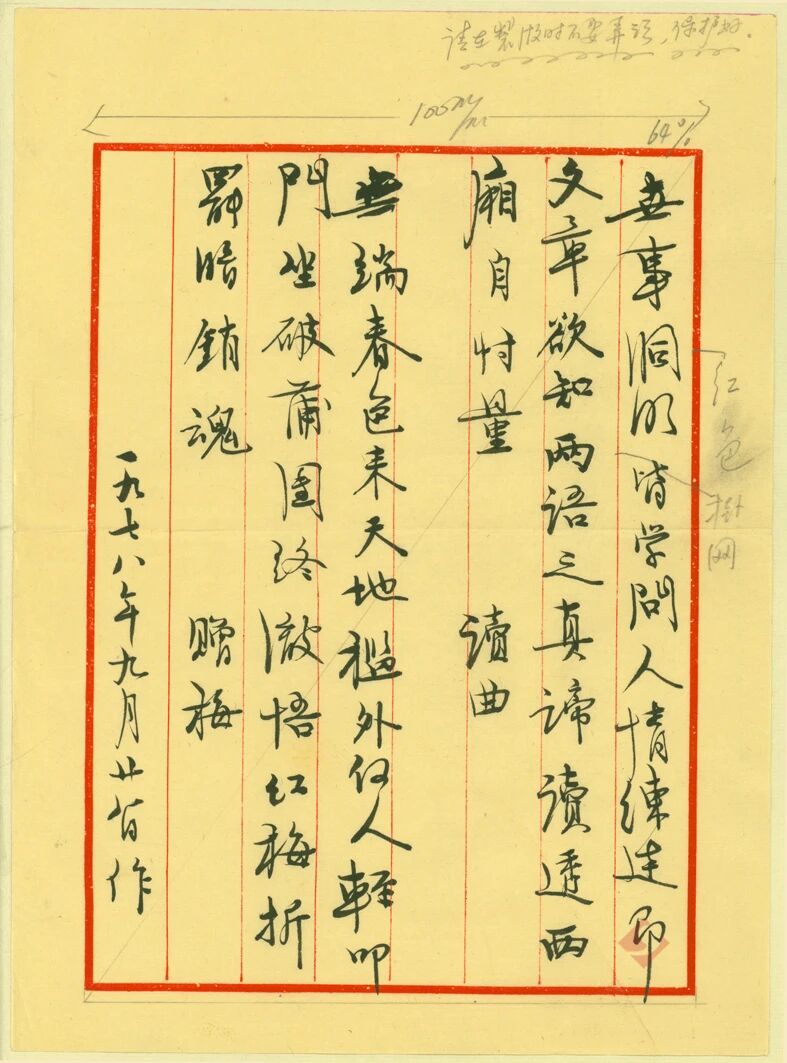 请在製版时不要弄污，保护好。
100m/m
64%
世事洞明皆学問人情練达即
文章欲知两语之真谛讀透西
廂自忖量 讀曲
無端春色来天地檻外何人輕叩
門坐破蒲团终澈悟红梅折
罷暗銷魂 赠梅
一九七八年九月廿作
红色掛网